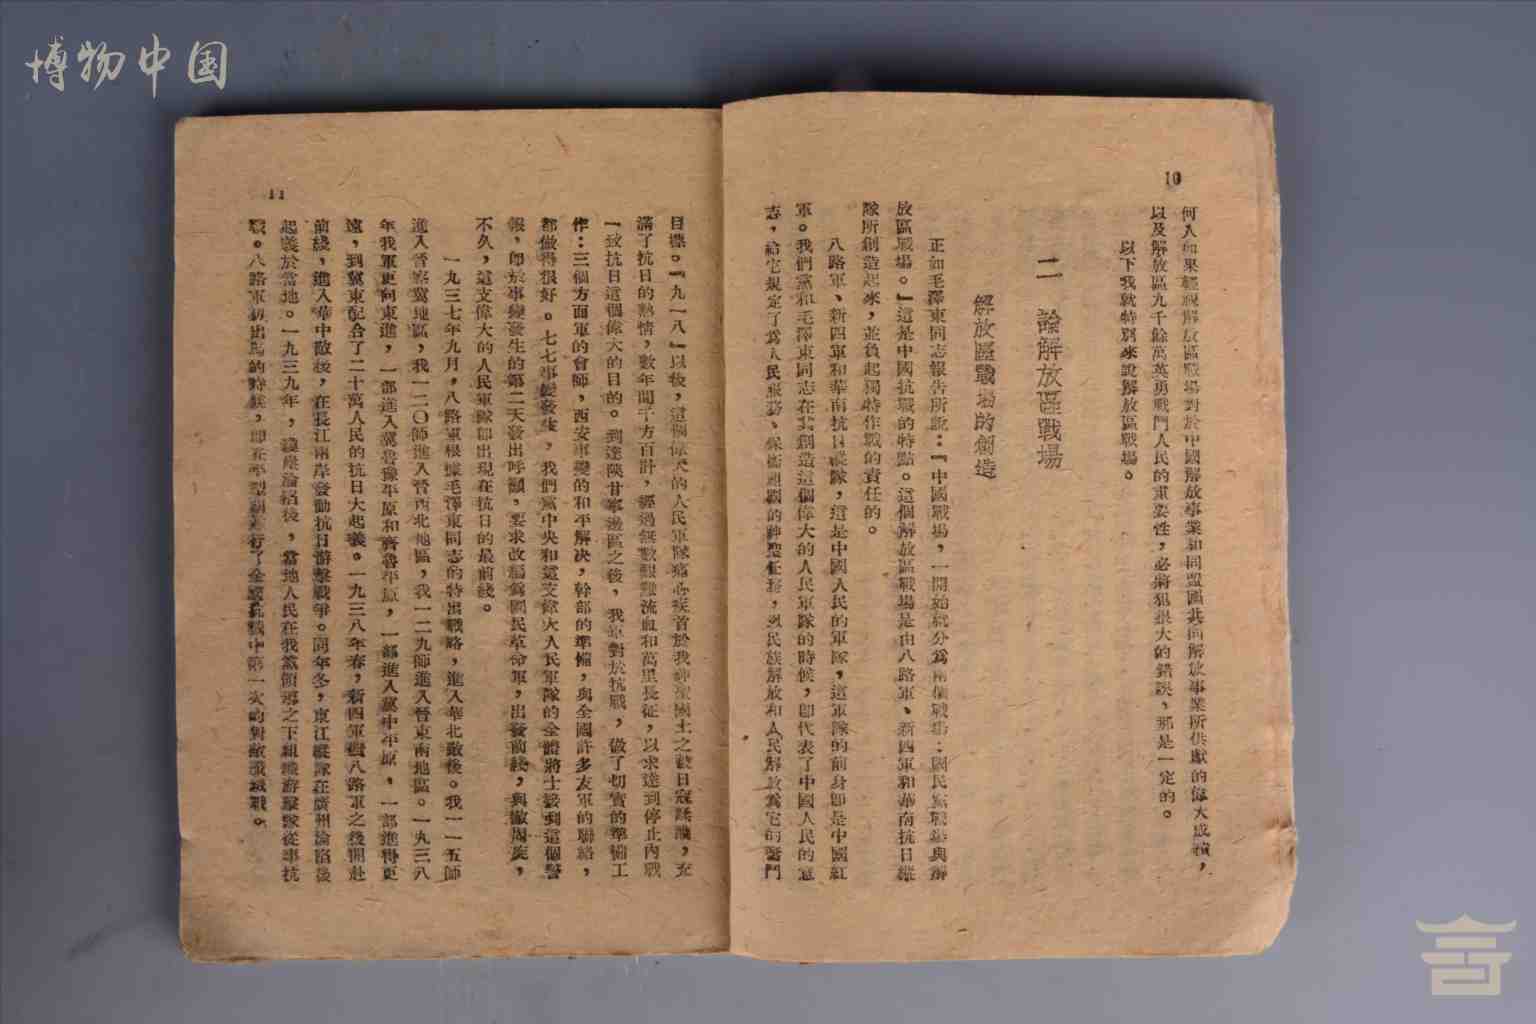 博物中国
10
何人如果輕視解放區戰場對於中國解放事業和同盟國共同解放事業所供獻的偉大成績，
以及解放區九千餘萬英勇戰鬥人民的重要性，必將犯很大的錯誤，那是一定的。
以下我就特別來說解放區戰場。
二 論解放區戰場
解放區戰場的創造
正如毛澤東同志報告所說：『中國戰場，一開始就分為兩個戰場：國民黨戰場與解
放區戰場。』這是中國抗戰的特點。這個解放區戰場是由八路軍、新四軍和華南抗日縱
隊所創造起來，並負起獨特作戰的責任的。
八路軍、新四軍和華南抗日縱隊，這是中國人民的軍隊，這軍隊的前身即是中國紅
軍。我們黨和毛澤東同志在其創造這個偉大的人民軍隊的時候，即代表了中國人民的意
志，給它規定了為人民服務、保衛祖國的神聖任務，以民族解放和人民解放為它的奮鬥
11
目標。『九一八』以後，這個偉大的人民軍隊痛心疾首於我神聖國土之被日寇蹂躪，充
滿了抗日的熱情，數年間千方百計，經過無數艱難流血和萬里長征，以求達到停止內戰
一致抗日這個偉大的目的。到達陝甘寧邊區之後，我軍對於抗戰，做了切實的準備工
作：三個方面軍的會師，西安事變的和平解決，幹部的準備，與全國許多友軍的聯絡，
都做得很好。七七事變發生，我們黨中央和這支偉大人民軍隊的全體將士接到這個警
報，即於事變發生的第二天發出呼籲，要求改編為國民革命軍，出發前綫，與敵周旋，
不久，這支偉大的人民軍隊即出現在抗日的最前綫。
一九三七年九月，八路軍根據毛澤東同志的特出戰略，進入華北敵後。我一一五師
進入晉察冀地區，我一二〇師進入晉西北地區，我一二九師進入晉東南地區。一九三八
年我軍更向東進，一部進入冀魯豫平原和齊魯平原，一部進入冀中平原，一部進得更
遠，到冀東配合了二十萬人民的抗日大起義。一九三八年春，新四軍繼八路軍之後開赴
前綫，進入華中敵後，在長江兩岸發動抗日游擊戰爭。同年冬，東江縱隊在廣州淪陷後
起義於當地。一九三九年，瓊崖淪陷後，當地人民在我黨領導之下組織游擊隊從事抗
戰。八路軍初出馬的時候，即在平型關進行了全國抗戰中第一次的對敵殲滅戰。